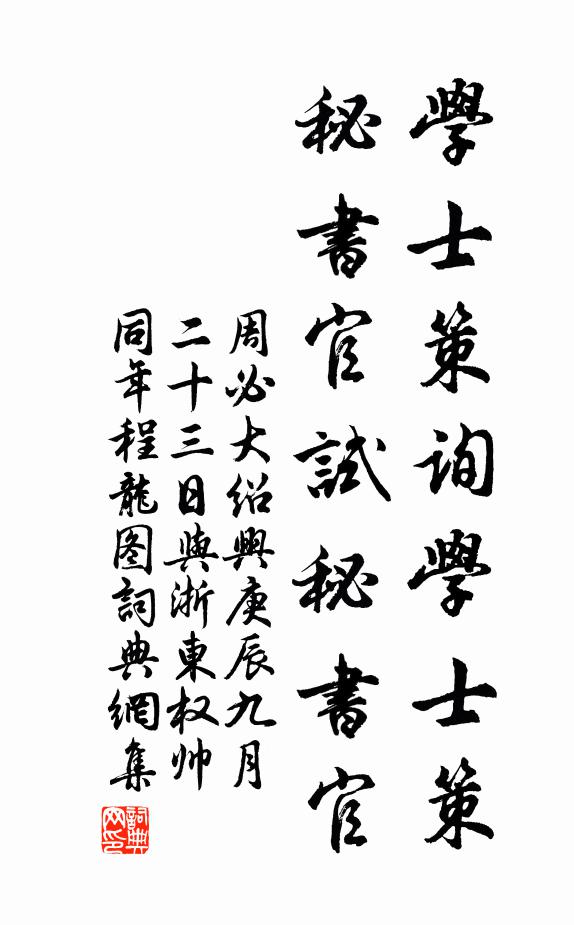 學士策询學士策
秘書官試秘書官
周必大绍興庚辰九月
二十三日與浙東权帅
同年程龍图詞典網集
詞典网印